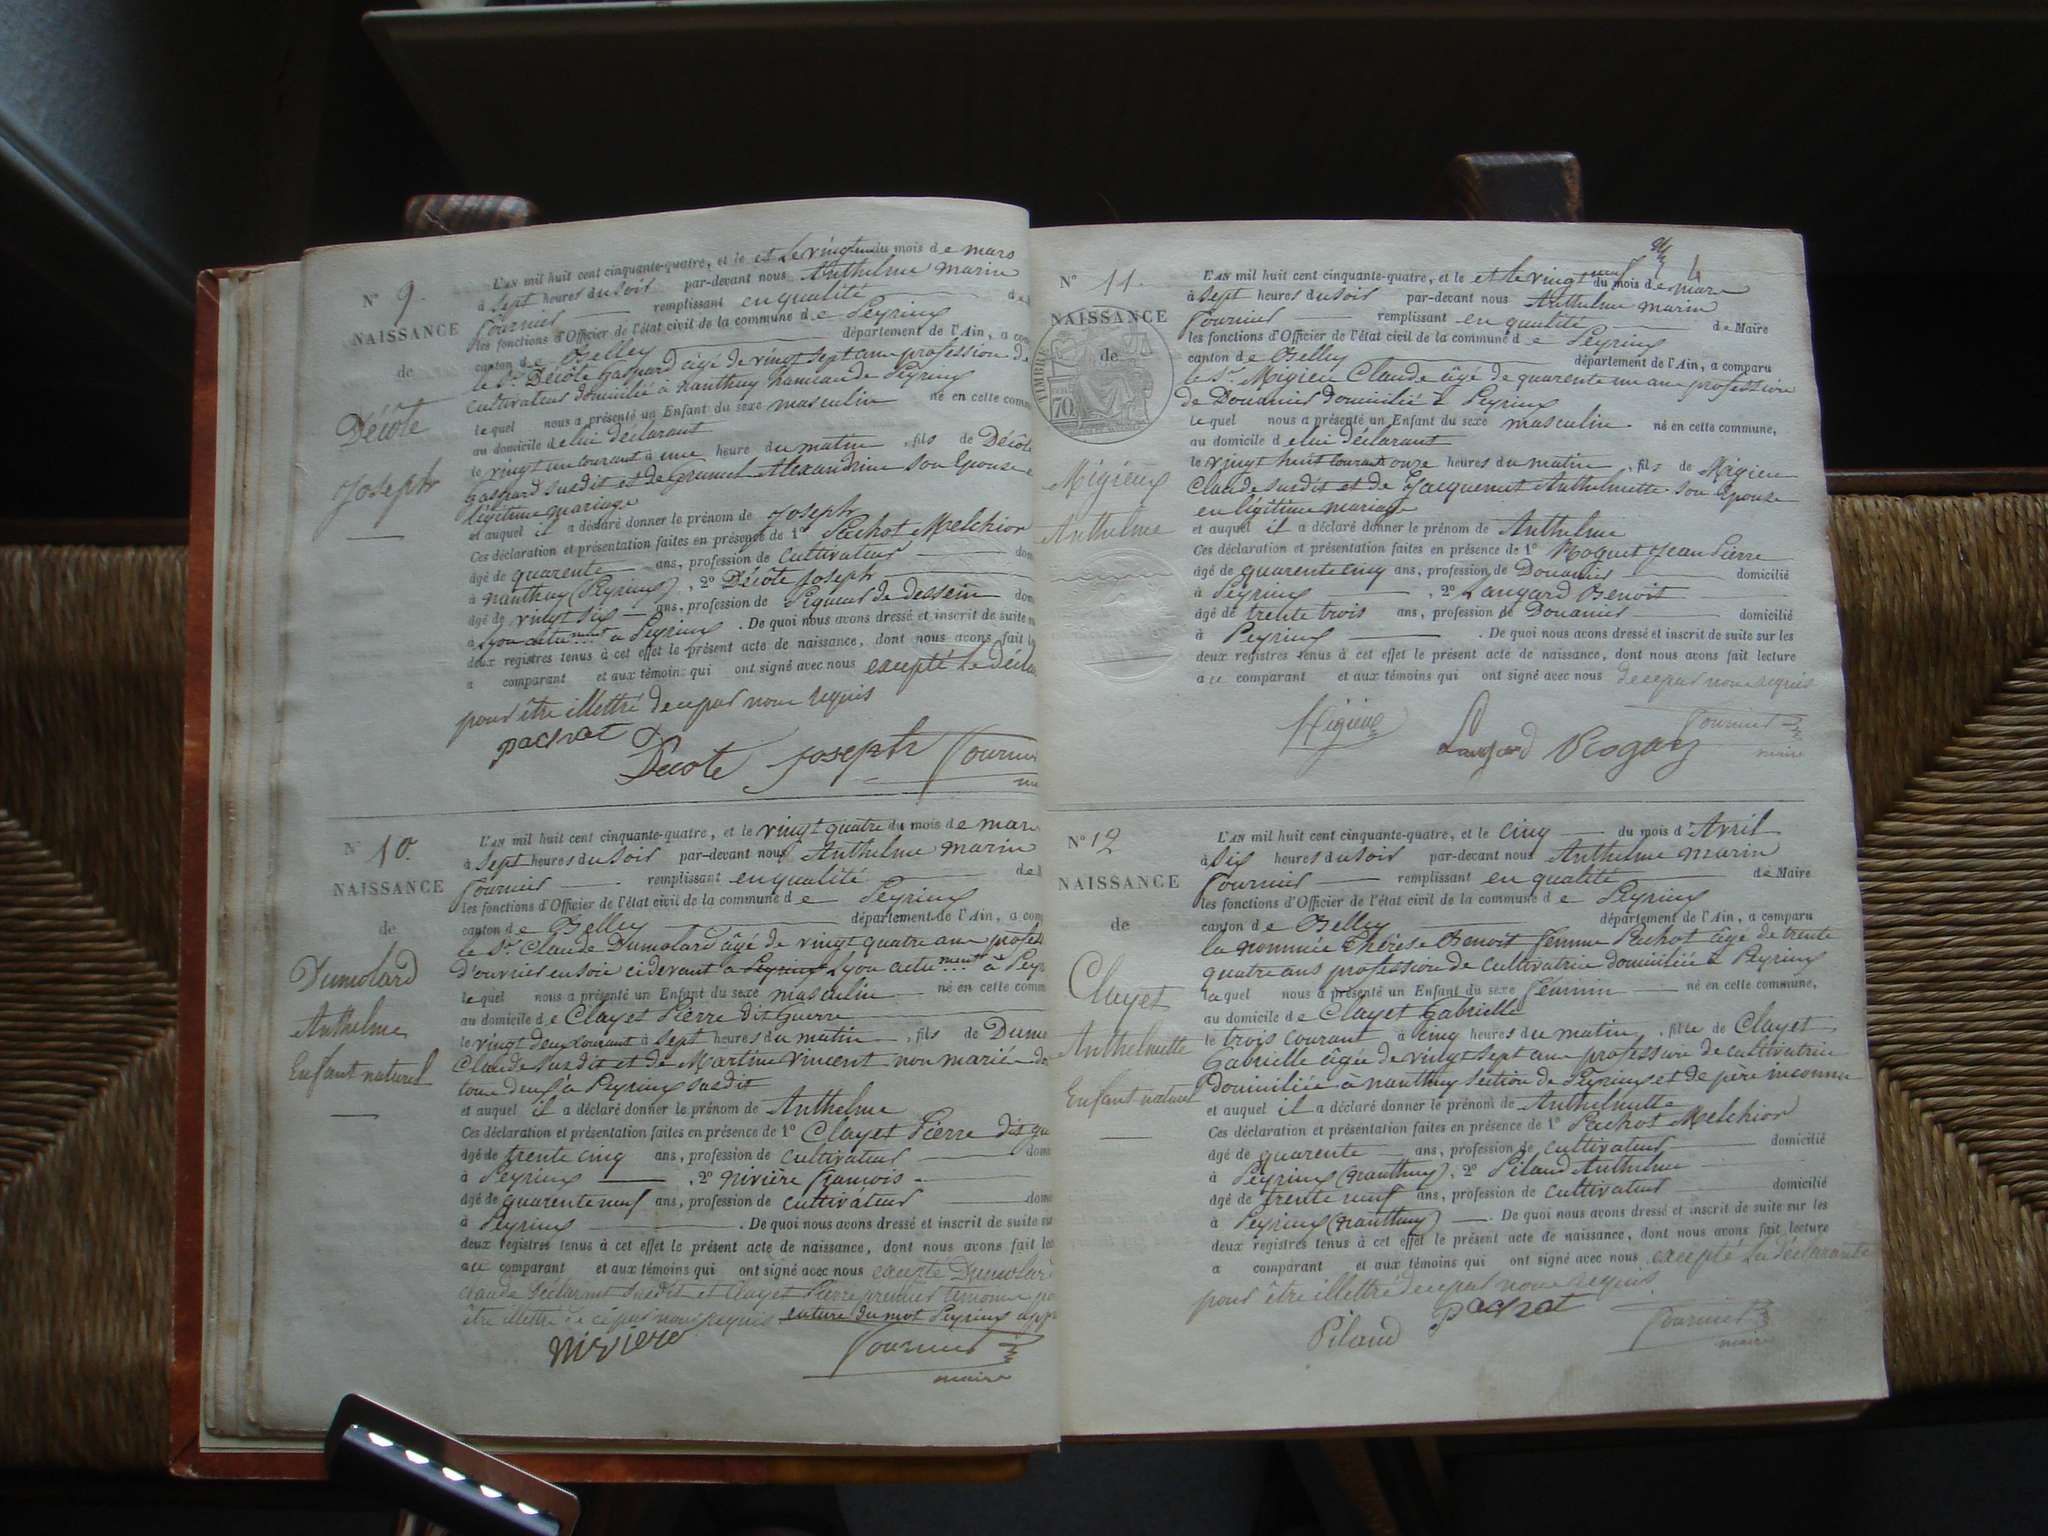 N° 9.
NAISSANCE
de
Décôte
Joseph
L'AN mil huit cent cinquante-quatre, et le et le vingt du mois de mars
à sept heures du soir par-devant nous Anthelme marin
Fournier remplissant en qualité de
les fonctions d'Officier de l'état civil de la commune de Peyrieux
canton de Belley département de l'Ain, a com
le Sr Décôte Gaspard âgé de vingt sept ans profession de
cultivateur domicilié à nanthuy hameau de Peyrieux
lequel nous a présenté un Enfant du sexe masculin né en cette comm
au domicile de lui déclarant
le vingt un courant à une heure du matin, fils de Décôte
Gaspard susdit et de Alexandrine son Epouse e
légitime mariage
et auquel il a déclaré donner le prénom de Joseph
Ces déclaration et présentation faites en présence de 1° Pachot Melchior
âgé de quarente ans, profession de cultivateur dom
à nanthuy (Peyrieux), 2° Décôte Joseph
âgé de vingt six ans, profession de Piqueur de dessein dom
à Lyon actu.ment à Peyrieux. De quoi nous avons dressé et inscrit de suite su
deux registres tenus à cet effet le présent acte de naissance, dont nous avons fait l
a comparant et aux témoins qui ont signé avec nous excepté le décla
pour être illettré de ce par nous requis
pachot
Decote Joseph Fournier
N° 10.
NAISSANCE
de
Dumolard
Anthelme
Enfant naturel
L'AN mil huit cent cinquante-quatre, et le vingt quatre du mois de mars
à sept heures du soir par-devant nous Anthelme marin
Fournier remplissant en qualité de
les fonctions d'Officier de l'état civil de la commune de Peyrieux
canton de Belley département de l'Ain, a com
le Sr Claude Dumolard âgé de vingt quatre ans profess
d'ouvrier en soie cidevant a Peyrieux Lyon actu.ment à Peyr
lequel nous a présenté un Enfant du sexe masculin né en cette comm
au domicile de Clayet Pierre dit Guerre
le vingt deux courant à sept heures du matin, fils de Dumo
Claude susdit et de Martine Vincent non marié do
tous deux à Peyrieux susdit
et auquel il a déclaré donner le prénom de Anthelme
Ces déclaration et présentation faites en présence de 1° Clayet Pierre dit gu
âgé de trente cinq ans, profession de cultivateur dom
à Peyrieux, 2° nivière françois
âgé de quarente neuf ans, profession de cultivateur dom
à Peyrieux. De quoi nous avons dressé et inscrit de suite su
deux registres tenus à cet effet le présent acte de naissance, dont nous avons fait le
au comparant et aux témoins qui ont signé avec nous excepté Dumolard
claude déclarant susdit et Clayet Pierre premier témoin po
être illettré de ce par nous requis rature du mot Peyrieux app
niviere
Fournier
maire
N° 11.
NAISSANCE
de
TIMBRE
70
Migieux
Anthelme
4
L'AN mil huit cent cinquante-quatre, et le et le vingt neuf du mois de mars
à sept heures du soir par-devant nous Anthelme marin
Fournier remplissant en qualité de Maire
les fonctions d'Officier de l'état civil de la commune de Peyrieux
canton de Belley département de l'Ain, a comparu
le Sr Migieu Claude âgé de quarente un ans profession
de Douanier domicilié à Peyrieux
lequel nous a présenté un Enfant du sexe masculin né en cette commune,
au domicile de lui déclarant
le vingt huit courant onze heures du matin, fils de Migieu
Claude susdit et de Jacquemet Anthelmette son Epouse
en légitime mariage
et auquel il a déclaré donner le prénom de Anthelme
Ces déclaration et présentation faites en présence de 1° Roguet Jean Pierre
âgé de quarente cinq ans, profession de Douanier domicilié
à Peyrieux, 2° Langard Benoit
âgé de trente trois ans, profession de Douanier domicilié
à Peyrieux. De quoi nous avons dressé et inscrit de suite sur les
deux registres tenus à cet effet le présent acte de naissance, dont nous avons fait lecture
au comparant et aux témoins qui ont signé avec nous de ce par nous requis
Migieux Langard Fournier
maire
N° 12
NAISSANCE
de
Clayet
Anthelmette
Enfant naturel
L'AN mil huit cent cinquante-quatre, et le cinq du mois d'Avril
à six heures du soir par-devant nous Anthelme marin
Fournier remplissant en qualité de Maire
les fonctions d'Officier de l'état civil de la commune de Peyrieux
canton de Belley département de l'Ain, a comparu
la nommée Thérèse Benoit femme Pachot âgé de trente
quatre ans profession de cultivatrice domiciliée à Peyrieux
laquel nous a présenté un Enfant du sexe féminin né en cette commune,
au domicile de Clayet Gabrielle
le trois courant à cinq heures du matin, fille de Clayet
Gabrielle âgée de vingt sept ans profession de cultivatrice
domiciliée à nanthuy section de Peyrieux et de père inconnu
et auquel il a déclaré donner le prénom de Anthelmette
Ces déclaration et présentation faites en présence de 1° Pachot Melchior
âgé de quarente ans, profession de cultivateur domicilié
à Peyrieux (nanthuy), 2° Piland Anthelme
âgé de trente neuf ans, profession de cultivateur domicilié
à Peyrieux (nanthuy). De quoi nous avons dressé et inscrit de suite sur les
deux registres tenus à cet effet le présent acte de naissance, dont nous avons fait lecture
a comparant et aux témoins qui ont signé avec nous excepté la déclarante
pour être illettré de ce par nous requis.
Piland pachot Fournier
maire